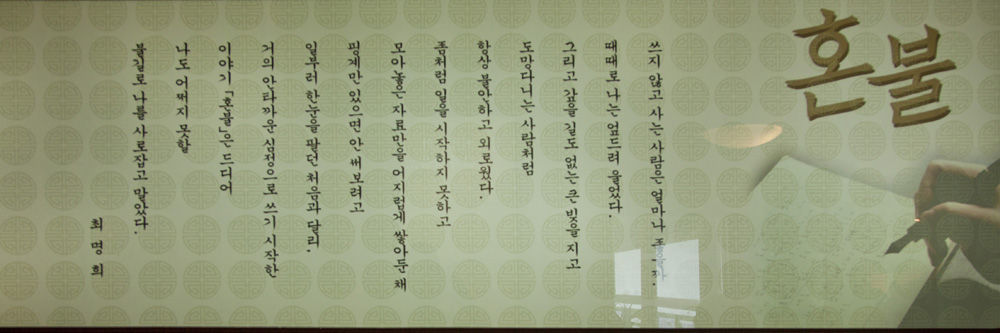 혼불
쓰지 않고 사는 사람은 얼마나 좋을까.
때때로 나는 엎드려 울었다.
그리고 갚을 길도 없는 큰 빚을 지고
도망다니는 사람처럼
항상 불안하고 외로웠다.
좀처럼 일을 시작하지 못하고
모아놓은 자료만을 어지럽게 쌓아둔 채
핑계만 있으면 안 써보려고
일부러 한눈을 팔던 처음과 달리.
거의 안타까운 심정으로 쓰기 시작한
이야기「혼불」은 드디어
나도 어쩌지 못할
불길로 나를 사로잡고 말았다.
최 명 희